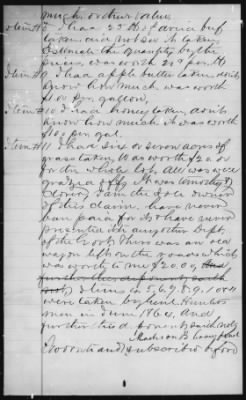 much, or their value
Item # 8 I had 25 lbs of dried beef
taken and not see it taken
Estimate the quantity by the
pieces was worth 20¢ per lb.
Item # 9 I had apple butter taken, don't
know how much was worth
$1.00 per gallon,
Item # 10 I had honey taken, don't
know how much, it was worth
$1.00 per gal.
Item # 11 I had six or seven acres of
grass taken, it was worth $20.00
for the whole lot, all was
grazed off,
I am the sole owner
of this claim, have never
been paid for it, have never
presented it to any other dept
of the Govt. There was an old
wagon left on the road which
was worth to me $20.00,
Items 5, 6, 7, 8, 9, 10 & 11
were taken by Genl Hunters
men in June 1864, and
further this deponent saith not
Madison B Crawford
Sworn to and subscribed before